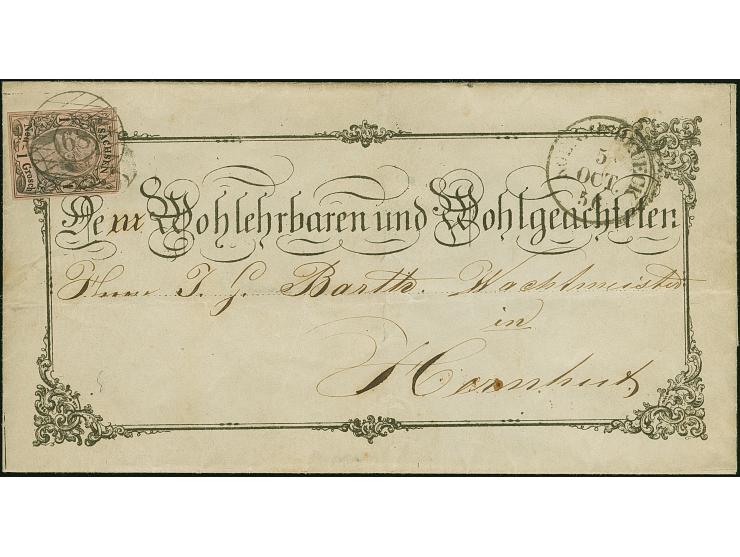 SACHSEN
1
Neu- 1 Grosch
1
5
OCT.
Dem Wohlehrbaren und Wohlgeachteten
Herrn J. G. Barth. Wachtmeister
in
Herrnhut